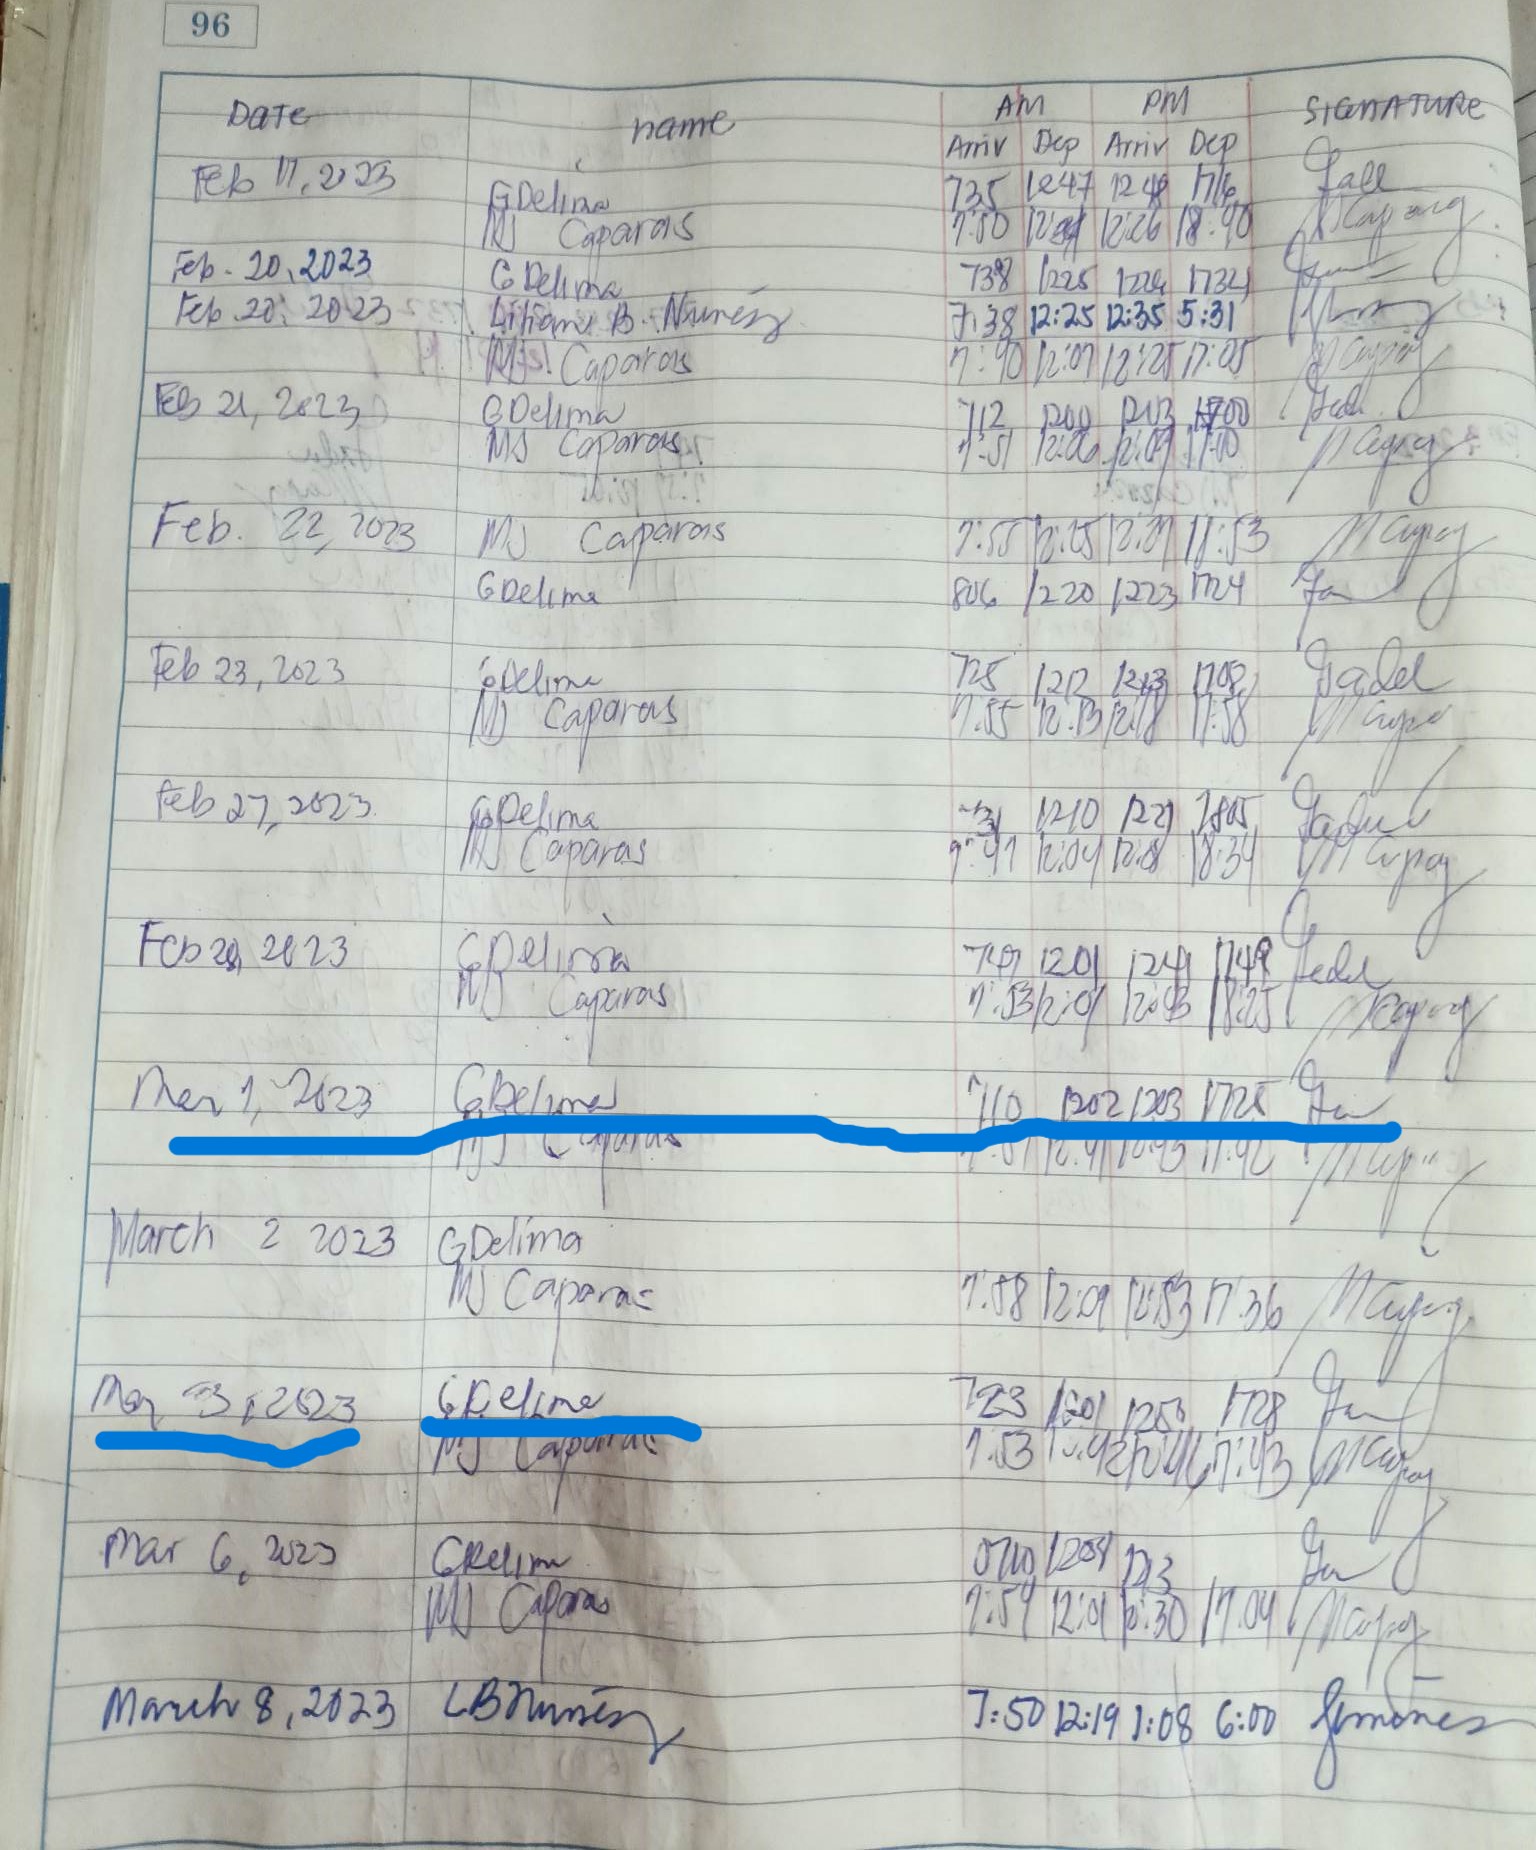 96
DATE name AM PM SIGNATURE
Arriv Dep Arriv Dep
Feb 17, 2023 GDelima 735 1247 1248 1716
MJ Caparas 7:50 12:26
Feb. 20, 2023 GDelima 738 1225 1226
Feb. 20, 2023 B. Nunez 7:38 12:25 12:35 5:31
MJ Caparas 7:40 12:07 12:25 17:05
Feb 21, 2023 GDelima 712 1200 1213 1700
MJ Caparas 7:51 12:06 12:09 17:00
Feb. 22, 2023 MJ Caparas 7:55 12:25 12:27 17:53
GDelima 806 1220 1223 1724
Feb 23, 2023 GDelima 725 1212 1213 1708
MJ Caparas 7:55 12:13 12:18 17:58
Feb 27, 2023 GDelima 1210 1221 1805
MJ Caparas 7:47 12:04 12:08 18:34
Feb 28, 2023 GDelima 1201 1241 1749
MJ Caparas 7:53 12:07 12:43 18:25
Mar 1, 2023 GDelima 710 1202 1203 1725
MJ Caparas 12:41 12:43 17:42
March 2 2023 GDelima
MJ Caparas 7:58 12:09 12:53 17:36
Mar 3, 2023 GDelima 723 1201 1253 1728
MJ Caparas 7:53 12:42 12:46 17:43
Mar 6, 2023 GDelima 0710 1209 1213
MJ Caparas 7:59 12:01 12:30 17:04
March 8, 2023 LBNunez 7:50 12:19 1:08 6:00